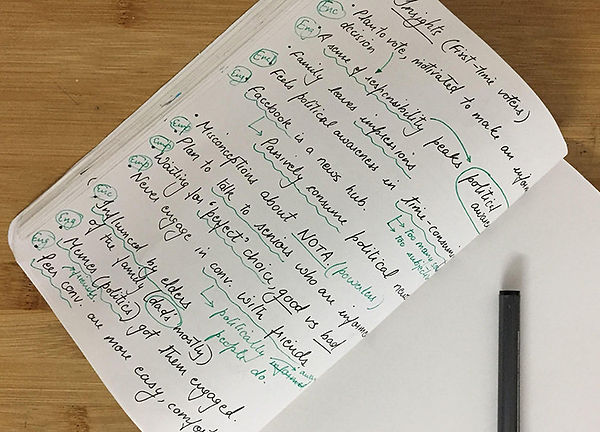 Insights (First-time voters)
Enc • Plan to vote, motivated to make an infor
decision
Eng A sense of responsibility peaks politici
awar
Emp • Family leaves impressions
Emp Feels political awareness in time-consumi
too many
too subjec
Facebook is a news hub.
Passively consume political
Emp • Misconceptions about NOTA (powerless)
Emp • Plan to talk to seniors who are informe
Emp Waiting for 'perfect' choice, good vs bad
Never engage in conv. with friends
politically informed
people do.
Enc Influenced by elders
of the family (dad's mostly)
Eng Memes (politics) got them engaged.
Eng Peer conv. are more easy, comfor